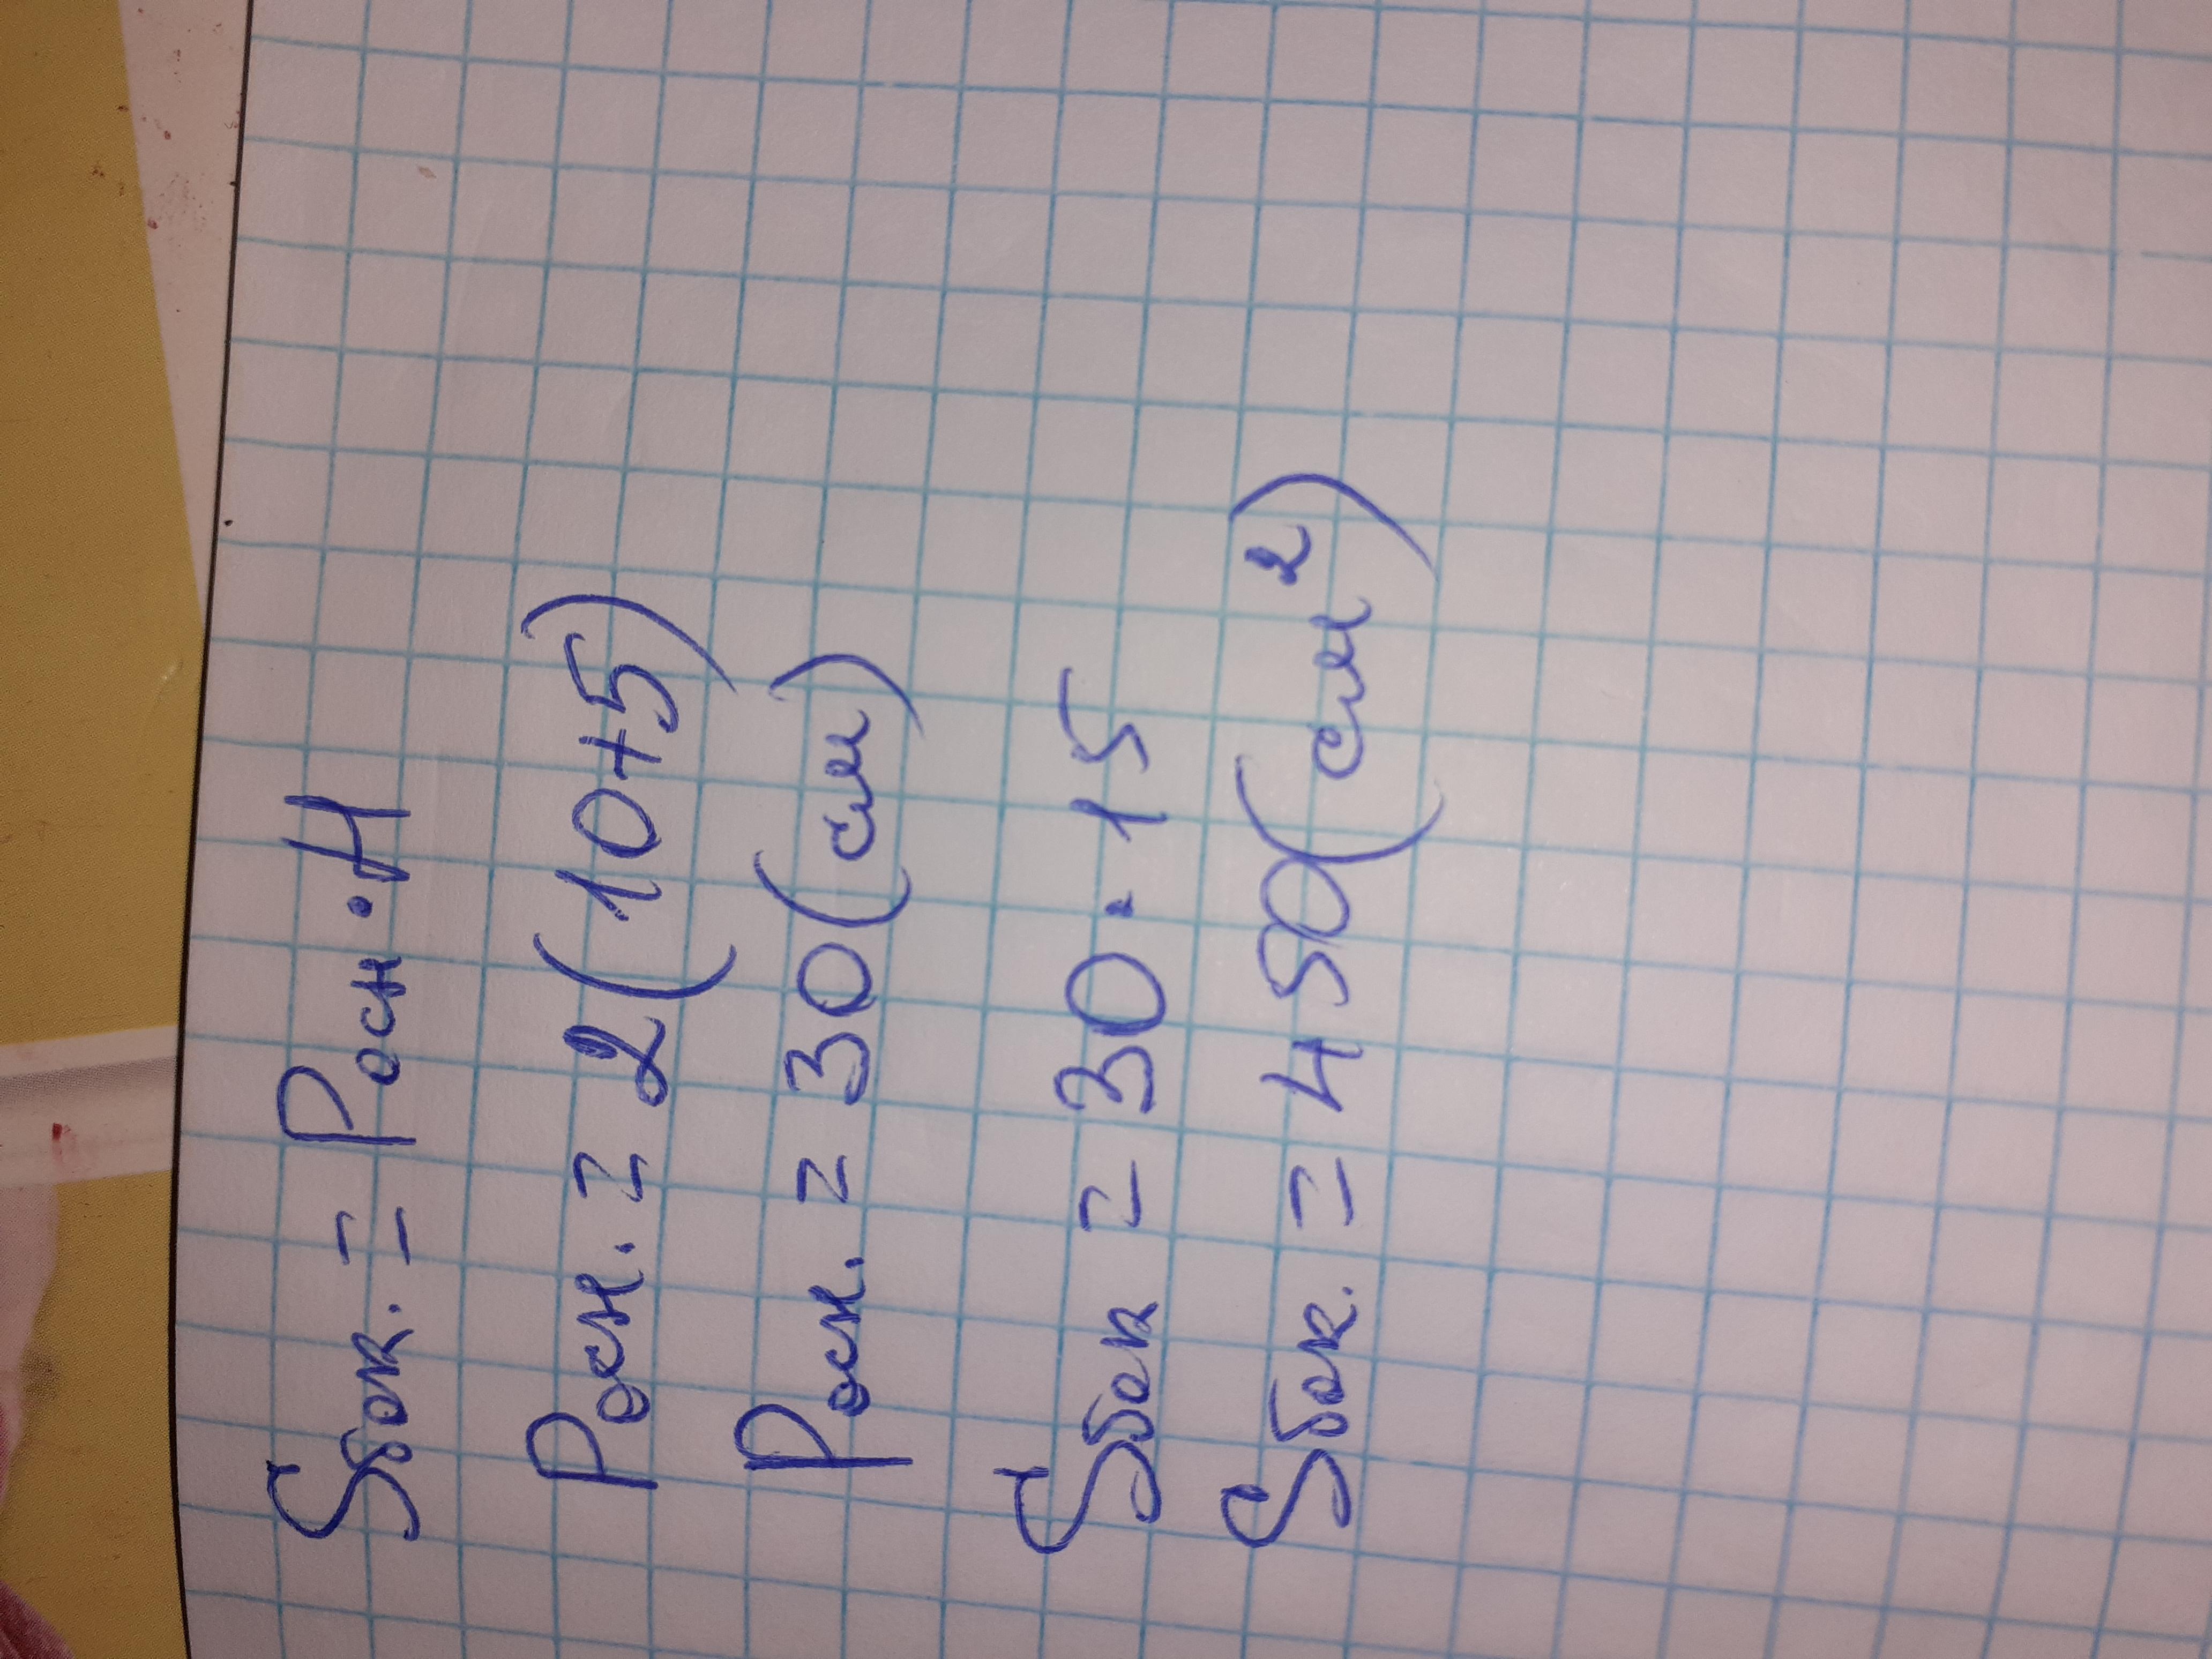 Sбок. = Pосн · H
Pосн. = 2(10+5)
Pосн. = 30(см)
Sбок = 30 · 15
Sбок. = 450(см²)